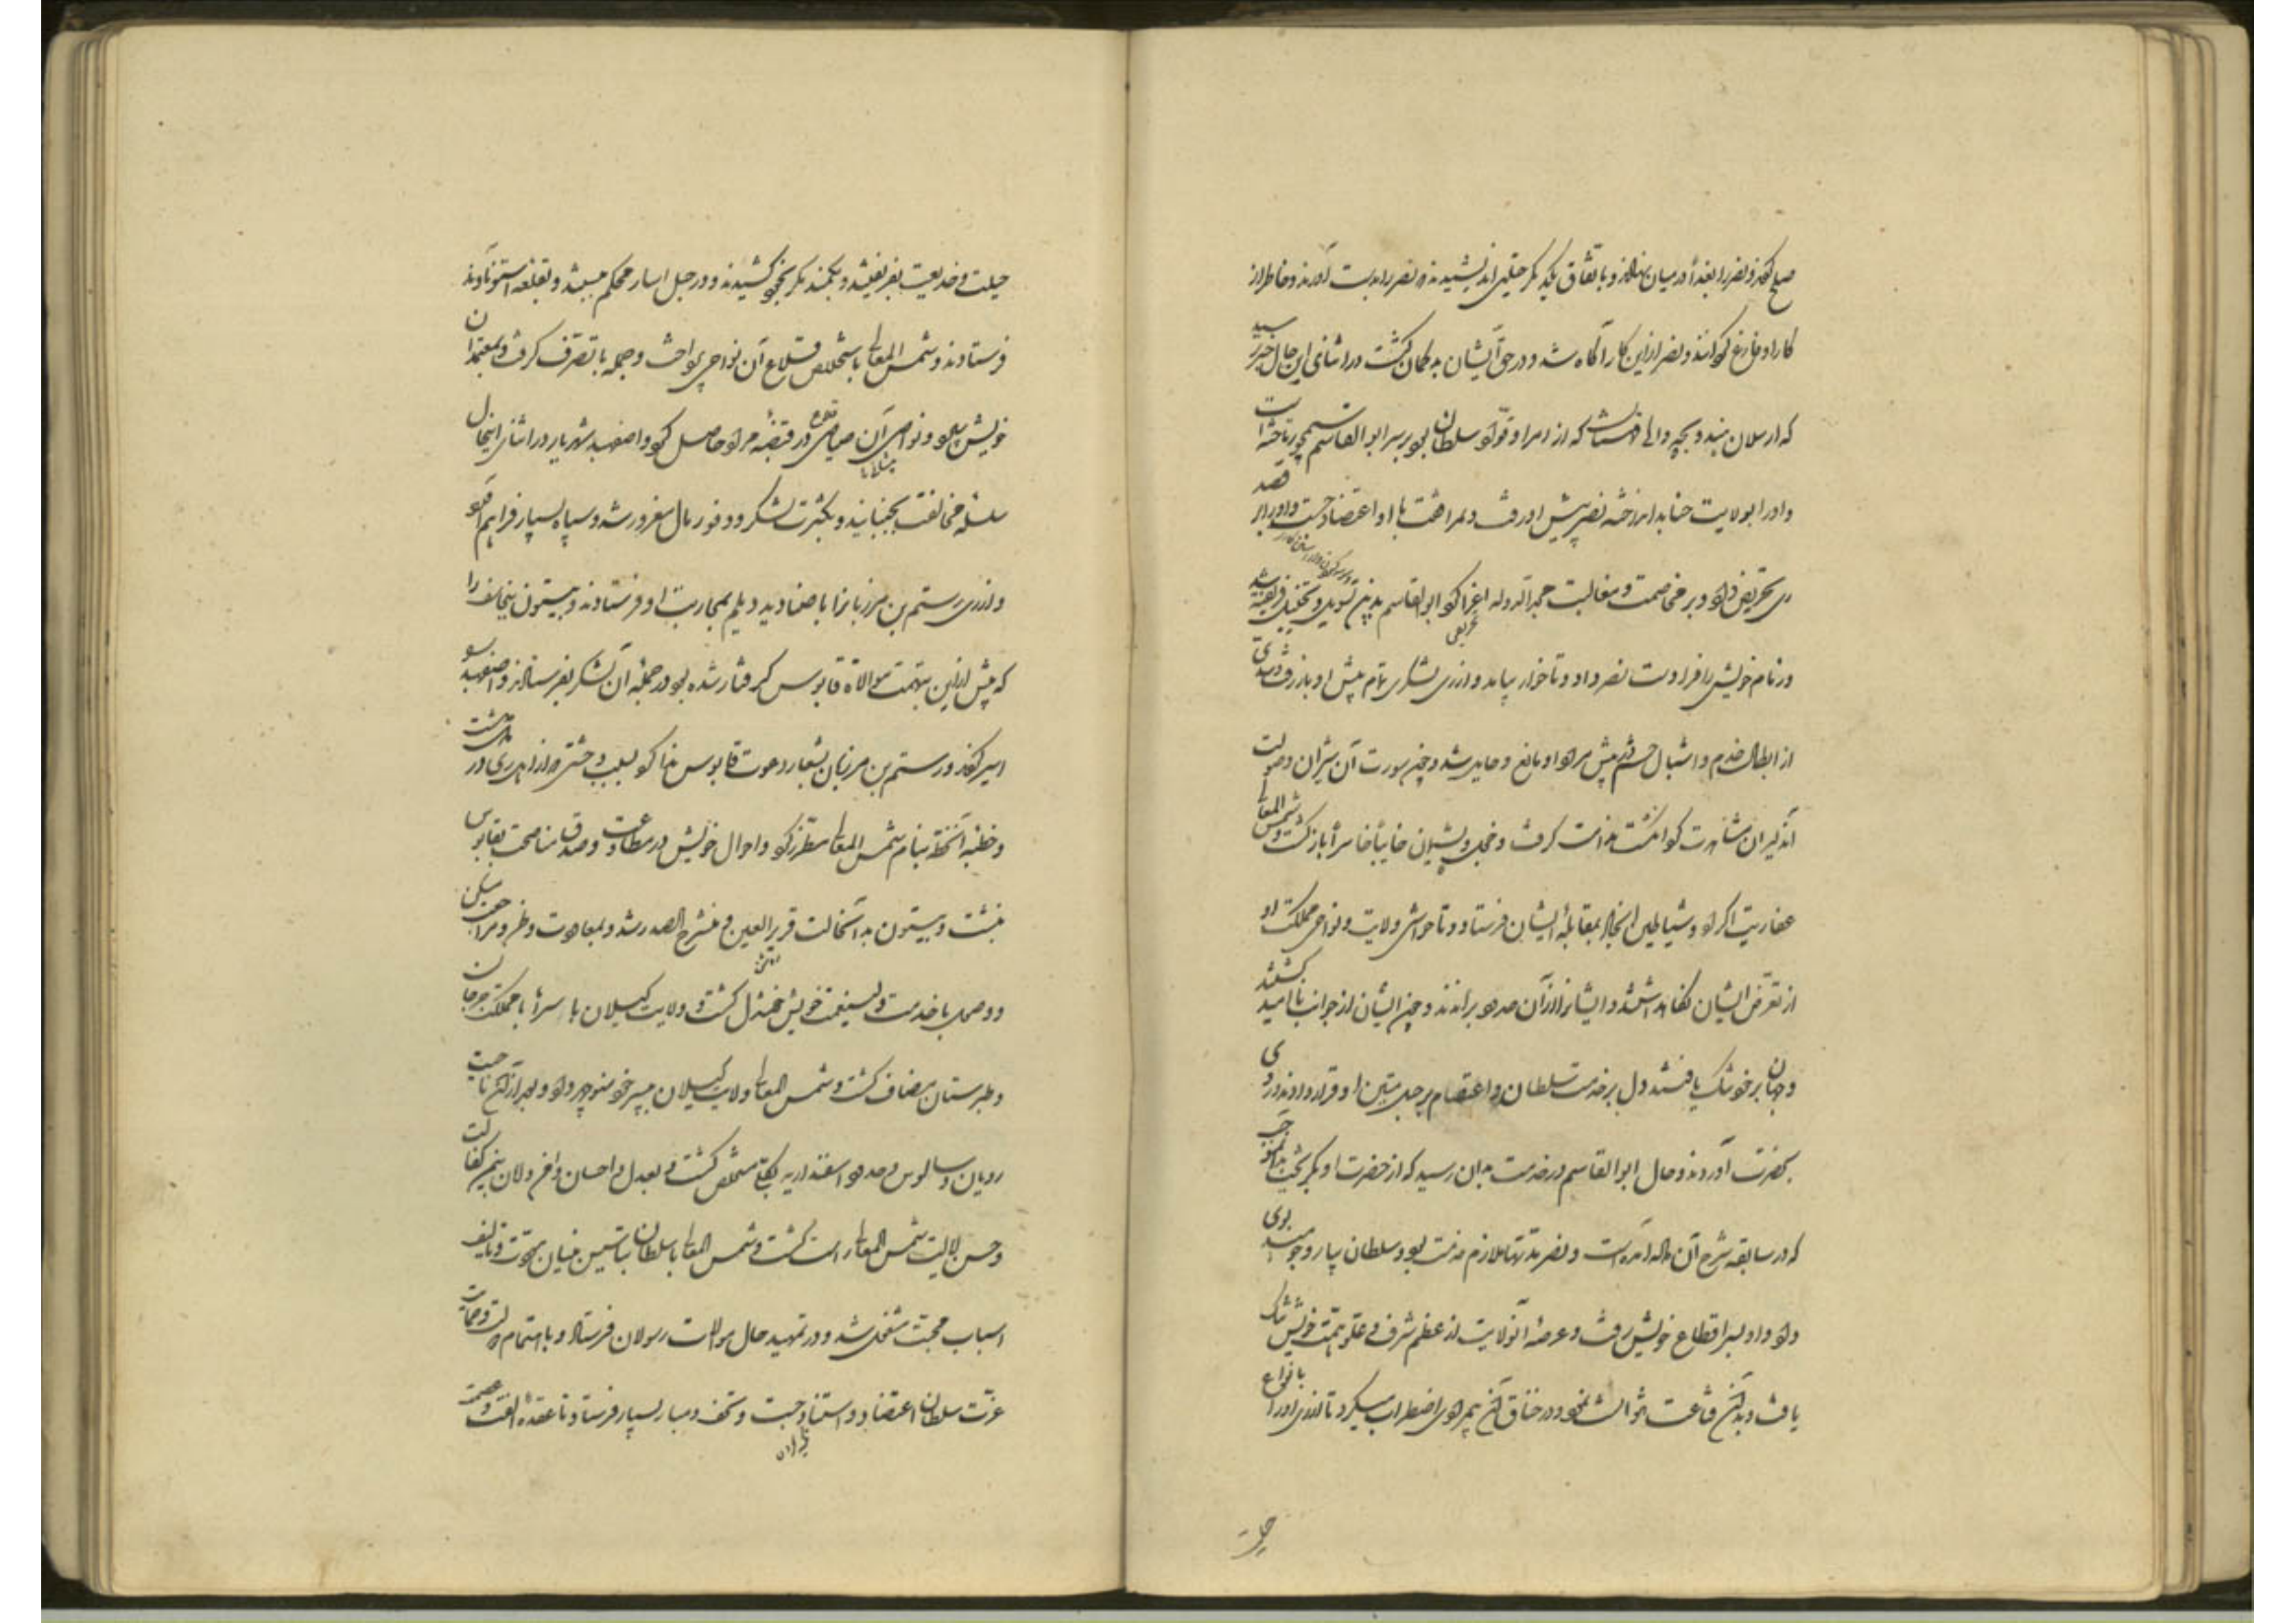 صلح کردند و نصر را بغدا در میان نهادند و باتفاق یکدیگر حیلتی اندیشیدند و نصر را بدست آوردند و خاطر از
کار او فارغ کردانند و نصر ازین کار آگاه شد و در حق ایشان بدگمان گشت در اثنای این حال خبر رسید
که ارسلان هندوبچه والی قهستان که از امرا و قواد سلطان بود بر سر ابوالقاسم سیمجور تاخته است
و او را بولایت جنابد انداخته نصر پیش او رفت و بمرافقت با او اعتضاد جست و او را بر قصد
ری تحریض داد و بر مخاصمت و مغالبت مجدالدوله اغرا کرد ابوالقاسم بدین تسویل و تخییل فریفته شد
و زمام خویش را فرا دست نصر داد و تا خوار بیامد و از ری لشکری تمام پیش او باز رفت و سدی
از ابطال خدم و اشبال حشم پیش مراد او مانع و حایل شد و چون سورت آن شیران و صولت
آن دلیران مشاهدت کرد انگشت ندامت گرفت و خجل و پشیمان خایباً خاسراً باز گشت و شمس المعالی
عفاریت اکراد و شیاطین انجاد بمقابله ایشان فرستاد و تا حواشی ولایت و نواحی مملکت او
از تعرض ایشان نگاه داشتند و ایشانرا از آن حدود براندند و چون ایشان از جوانب نا امید گشتند
و جهان بر خود تنگ یافتند دل بر خدمت سلطان و اعتصام بحبل متین او قرار دادند و روی
بحضرت آوردند و حال ابوالقاسم در خدمت بدان رسید که از حضرت او بگریخت بدان موجب
که در سابقه شرح آن داده آمده است و نصر مدتها ملازم خدمت بود و سلطان بیار و جومند بوی
داد و او بسر اقطاع خویش رفت و عرصه آن ولایت از عظم شرف و علو همت خویش تنگ
یافت و بدان قناعت نتوانست نمود و در خناق آن بیمرادی اضطراب میکرد تا از ری او را بانواع
حیلت
حیلت و خدیعت بفریفتند و بکمند مکر بخود کشیدند و در حبل اسار محکم ببستند و بقلعه استوناوند
فرستادند و شمس المعالی باستخلاص قلاع آن نواحی پرداخت و جمله با تصرف گرفت و بمعتمدان
خویش سپرد و نواصی آن صیاصی در قبضه مراد حاصل کرد و اصفهبد شهریار در اثنای اینحال
سلسله مخالفت بجنبانید و بکثرت لشکر و وفور مال مغرور شد و سپاه بسیار فراهم آورد
و از ری رستم بن مرزبانرا با صنادید دیلم بمحاربت او فرستادند و بیستون بن بیجاسف را
که پیش ازین بتهمت موالاة قابوس گرفتار شده بود در جمله آن لشکر بفرستادند و اصفهبد
اسیر کردند و رستم بن مرزبان بشعار دعوت قابوس ندا کرد بسبب وحشتی که از اهل ری در دل داشت
و خطبه آن خطه بنام شمس المعالی مطرز کرد و احوال خویش در مطاوعت و صدق مناصحت بقابوس
بنبشت و بیستون بدان حالت قریر العین و منشرح الصدر شد و بمعاودت وطن و مراجعت مسکن
و وصول با خدمت ولینعمت خویش خوشدل گشت و ولایت گیلان با سرها با مملکت جرجان
و طبرستان مضاف گشت و شمس المعالی ولایت گیلان بپسر خود منوچهر داد و بعد از آن ناحیت
رویان و سالوس و حدود استنداریه بکلی مستخلص گشت و بعدل و احسان وافر و لان بیمن کفالت
و حسن ایالت شمس المعالی آراسته گشت و شمس المعالی با سلطان بتاسیس بنیان مودت و تالیف
اسباب محبت مشغول شد و در تمهید حال موالات رسولان فرستاد و باهتمام دولت و حمایت
عزت سلطان اعتضاد و استناد جست و تحف و مبار بسیار فرستاد تا عقده الفت و عصمت